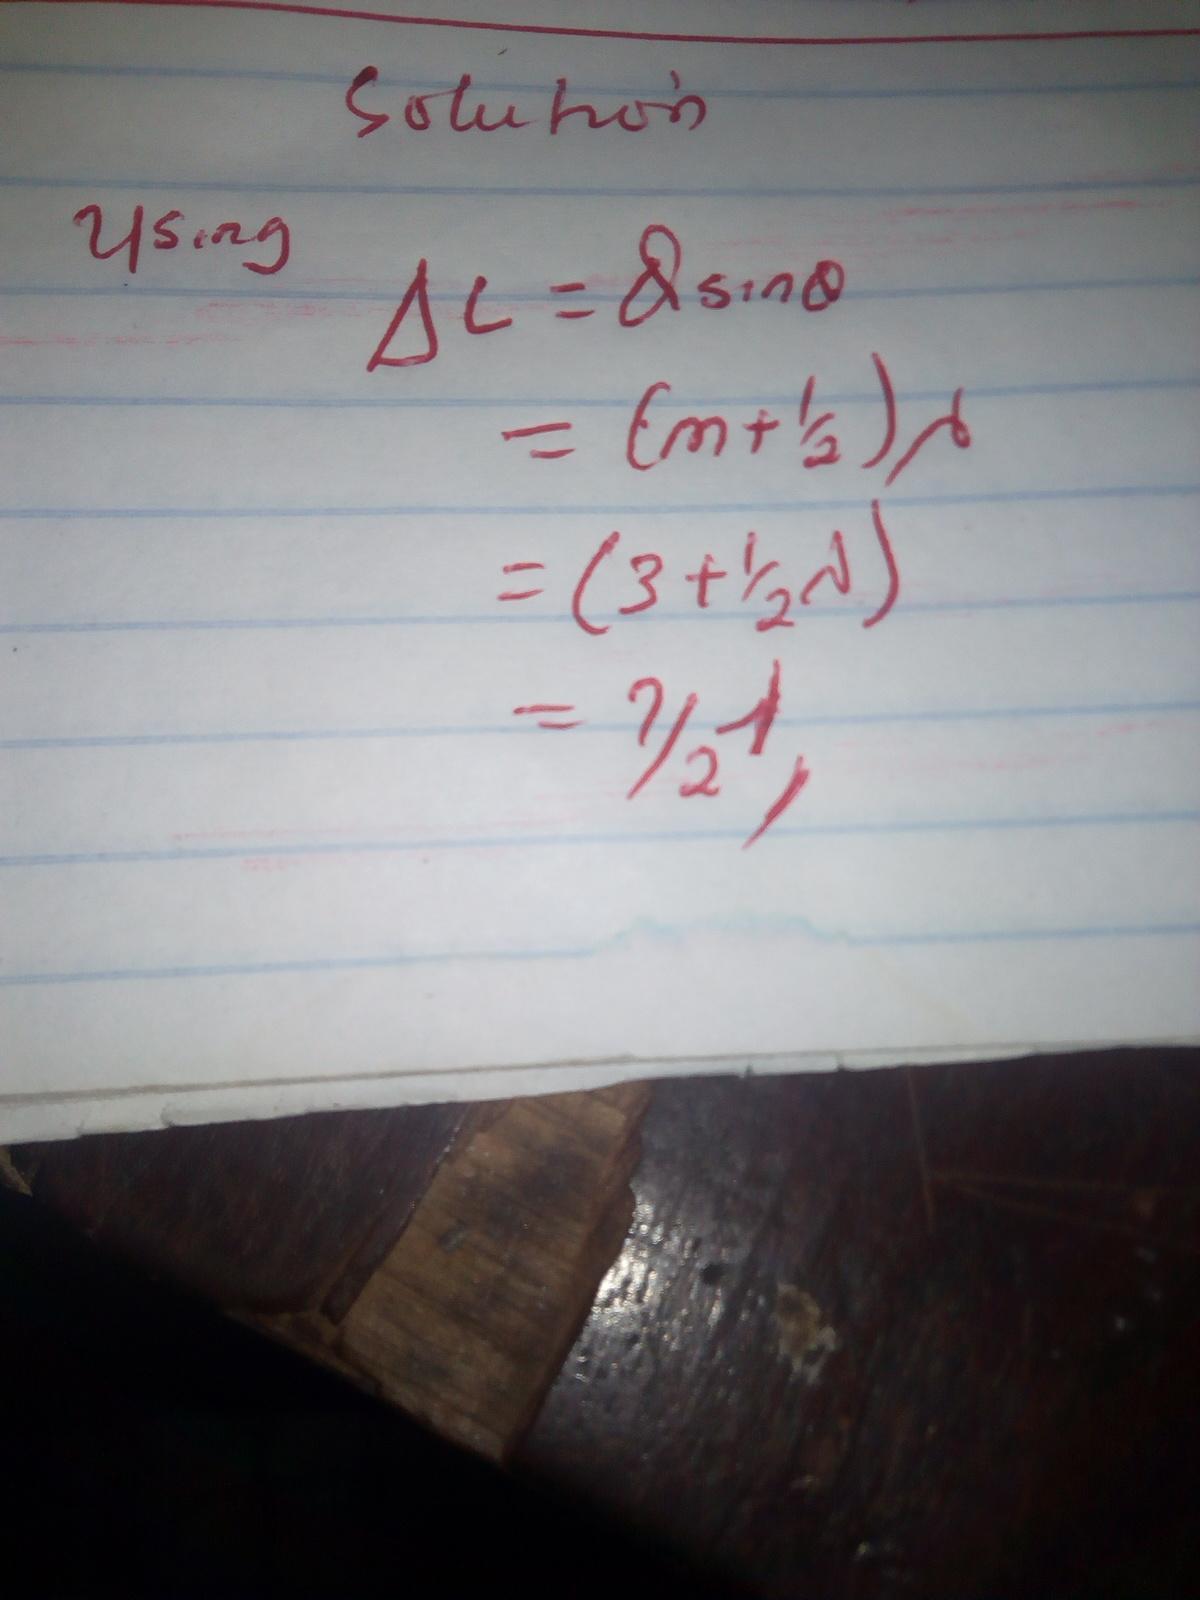 Solution
Using
ΔL = d sinθ
= (m + 1/2) λ
= (3 + 1/2 λ)
= 7/2 λ,